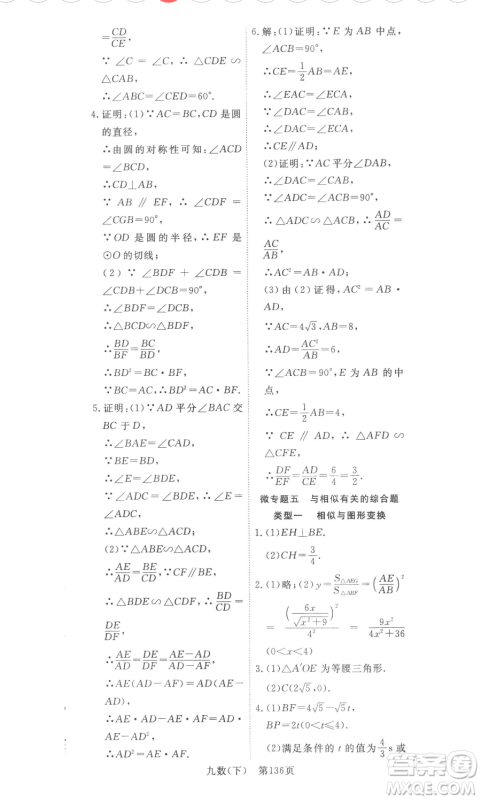 =CD/CE,
∵ ∠C = ∠C, ∴ △CED∽
△CAB,
∴∠ABC=∠CED=60°.
4.证明:(1)∵AC=BC,CD是圆
的直径,
∴由圆的对称性可知:∠ACD
=∠BCD,
∴CD⊥AB,
∵ AB ∥ EF, ∴ ∠CDF =
∠CGB=90°,
∵OD是圆的半径,∴EF是
⊙O的切线;
(2) ∵ ∠BDF + ∠CDB =
∠CDB+∠C=90°,
∴∠BDF=∠CDB,
∴△BCD∽△BDF,
∴BD/BF=BC/BD,
∴BD²=BC·BF.
∵BC=AC,∴BD²=AC·BF.
5.证明:(1)∵AD平分∠BAC交
BC于D,
∴∠BAE=∠CAD,
∴∠BAE=∠BDE,
∵∠E=∠E,
∴△ABE∽△BDE,
(2)∵△ABE∽△BDE,
∴AE/AD=BE/BD,∵CF∥BE,
∴ △BDE ∽ △CDF, ∴ BD/CD =
DE/DF,
∴AE/AD=DE/DF=AE-AD/AD-AF,
∴AE(AD-AF)=AD(AE-
AD),
∴AE·AD-AE·AF=AD·
AE-AD²,
∴AD²=AE·AF.
6.解:(1)证明:∵E为AB中点,
∠ACB=90°,
∴CE=1/2AB=AE,
∴∠EAC=∠ECA,
∴∠DAC=∠CAE=∠ECA,
∴CE∥AD;
(2)证明:∵AC平分∠DAB,
∴∠DAC=∠CAB,
∵∠ADC=∠ACB=90°,
∴△ADC∽△ACB,∴AD/AC=
AC/AB,
∴AC²=AB·AD;
(3)由(2)证得,AC²=AB·
AD,
∵AC=4√3,AB=8,
∴AD=AC²/AB=6,
∵∠ACB=90°,
∴CE=1/2AB=4,
∵ CE ∥ AD, ∴ △AFD ∽
△CFE,
∴DF/EF=AD/CE=6/4=3/2.
微专题五 与相似有关的综合题
类型一 相似与图形变换
1.(1)EH⊥BE.
(2)CH=3/4.
2.(1)略;(2)y=S△AEG/S△ABF=(AE/AB)²
=(6x/√(x²+9))²/4²=9x²/4x²+36
(0<x<4)
3.(1)△A′OE为等腰三角形.
(2)C(2√5,0).
4.(1)BF=4√5-√5t,
BP=2t(0<t<4)
(2)满足条件的t的值为4/3s或
九数(下) 第136页